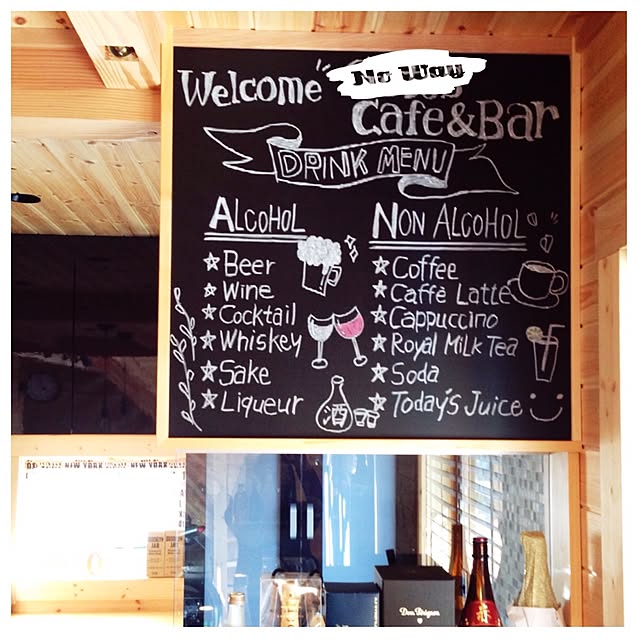 Welcome
No Way
Cafe&Bar
DRINK MENU
ALCOHOL
Beer
Wine
Cocktail
Whiskey
Sake
Liqueur
酒
NON ALCOHOL
Coffee
Caffè Latte
Cappuccino
Royal Milk Tea
Soda
Today's Juice
NEW YORK
NEW YORK
BROOKLYN
Dom Pérignon
赤